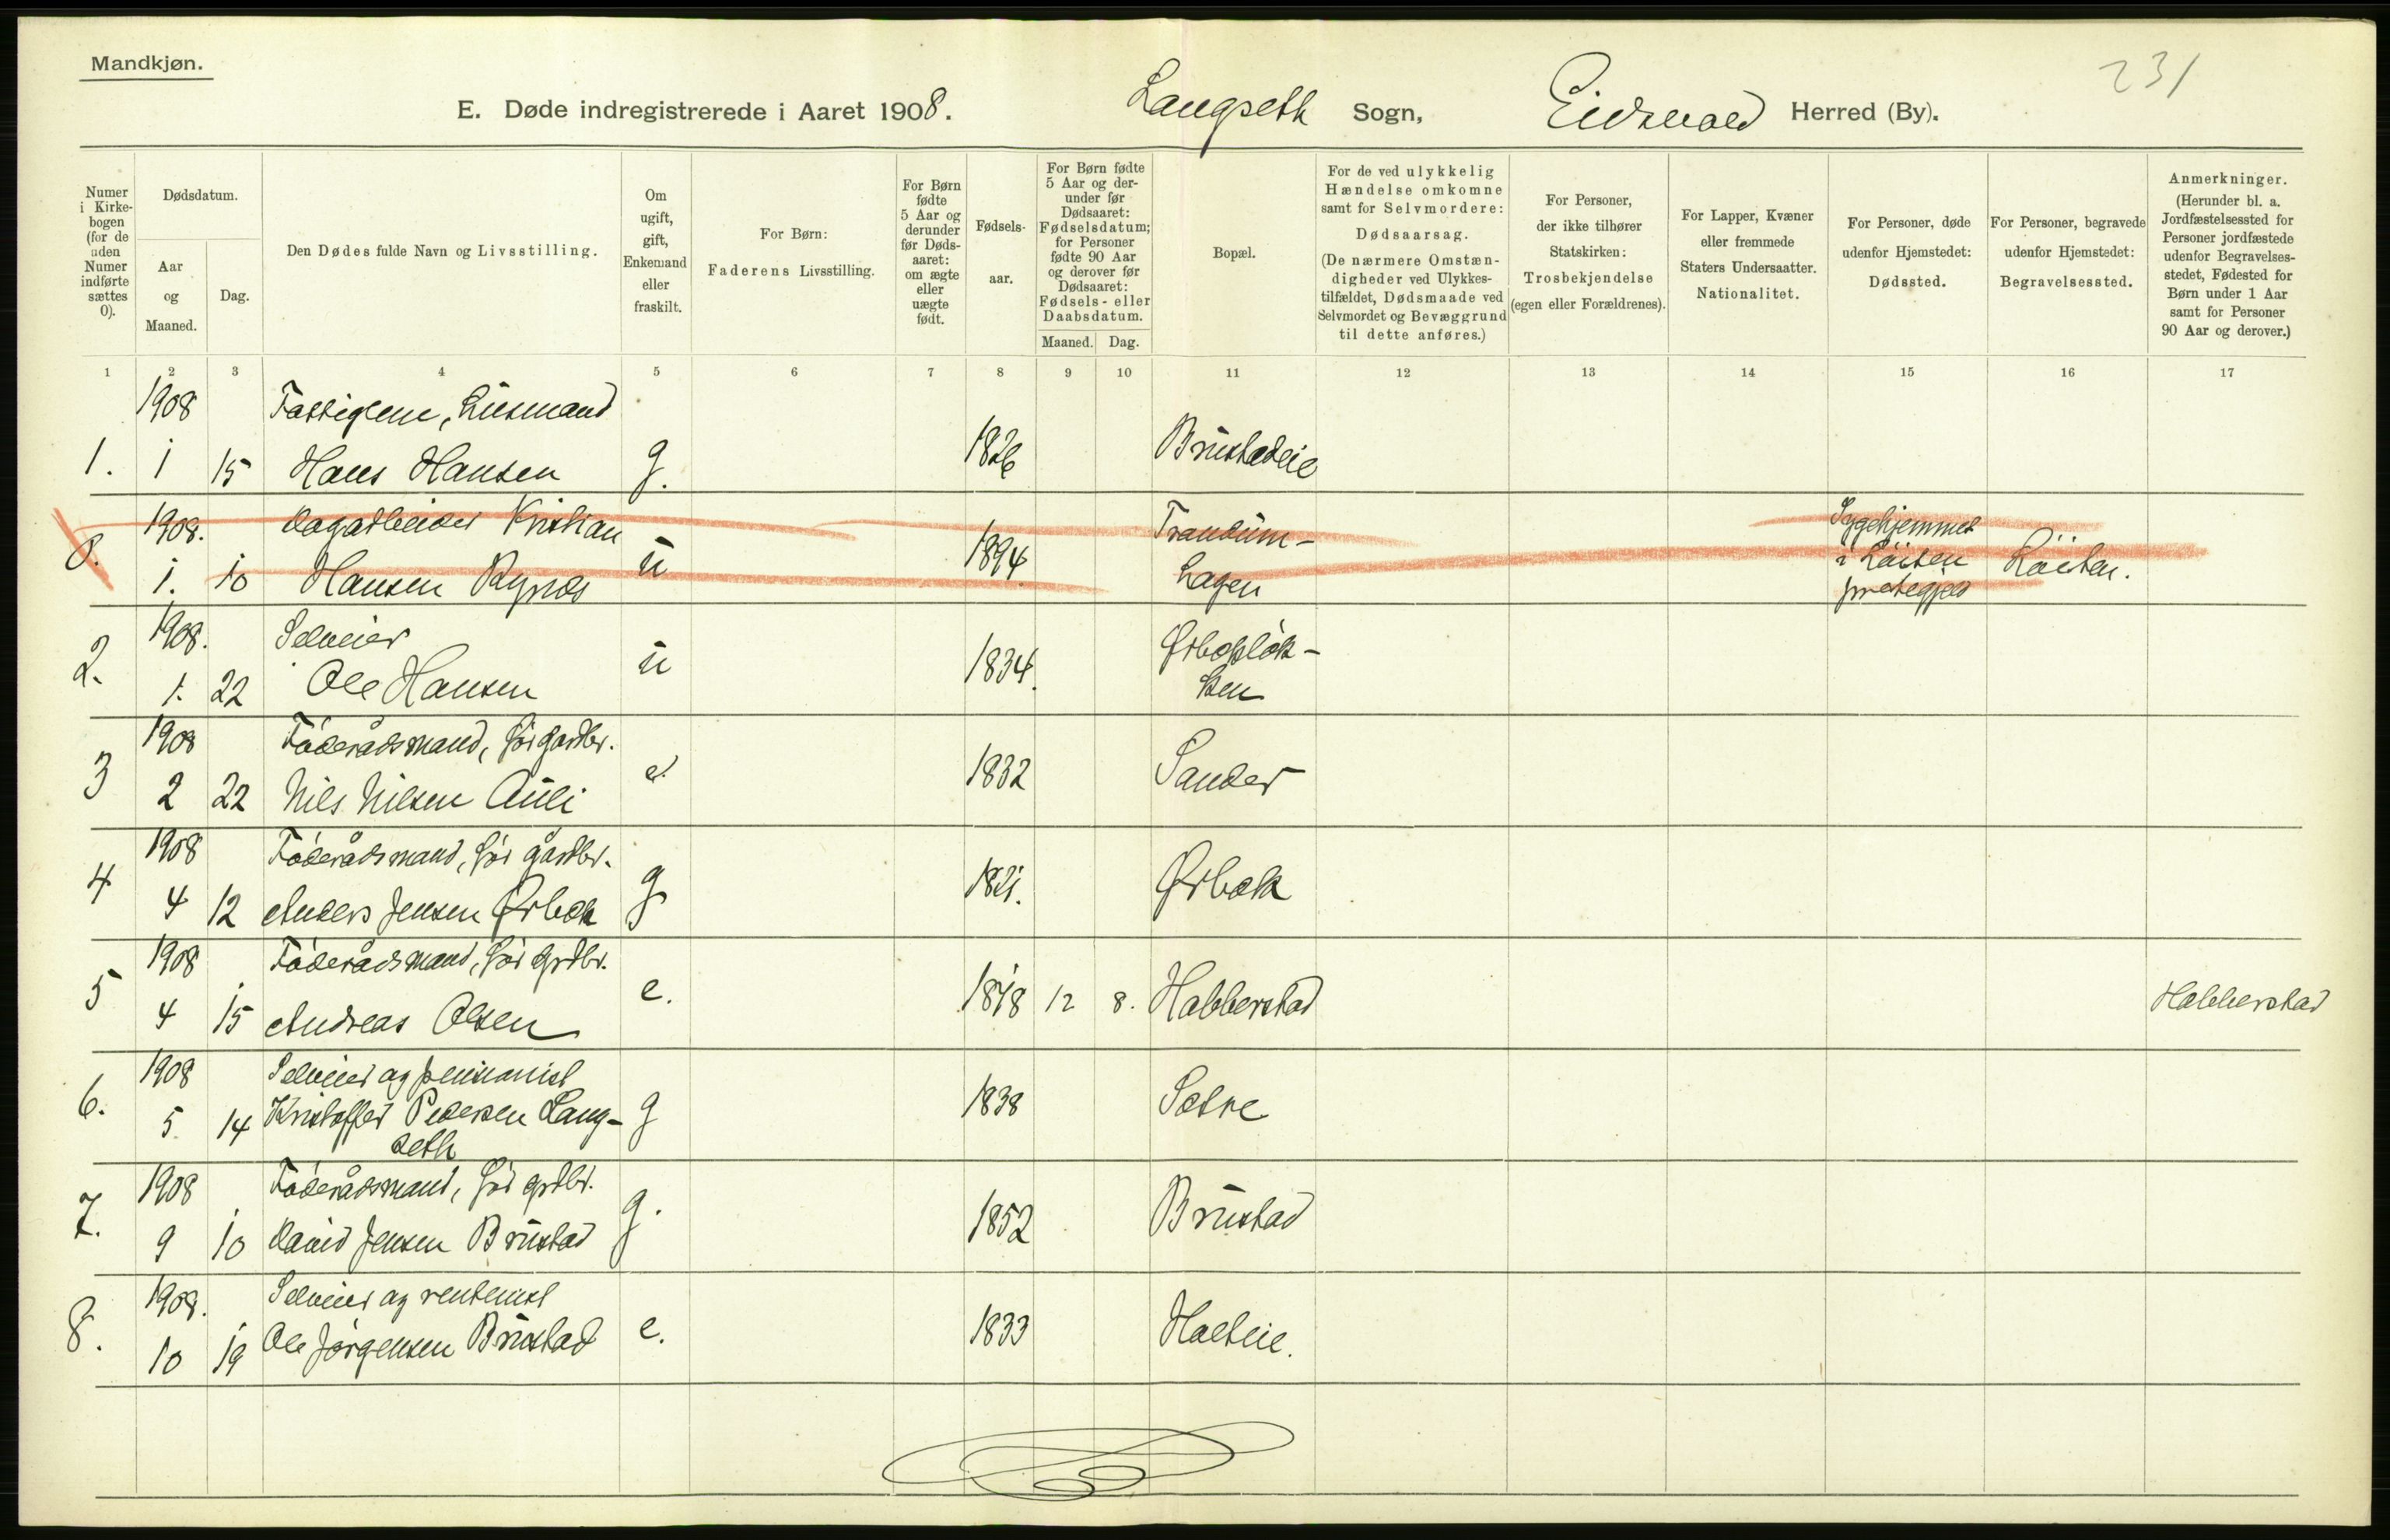 Mandkjøn.
231
E. Døde indregistrerede i Aaret 1908. Langseth Sogn, Eidsvold Herred (By).
Numer i Kirkebogen (for de uden Numer indførte sættes 0).
Dødsdatum.
Aar og Maaned.
Dag.
Den Dødes fulde Navn og Livsstilling.
Om ugift, gift, Enkemand eller fraskilt.
For Børn: Faderens Livsstilling.
For Børn fødte 5 Aar og derunder før Dødsaaret: om ægte eller uægte født.
Fødselsaar.
For Børn fødte 5 Aar og derunder før Dødsaaret: Fødselsdatum; for Personer fødte 90 Aar og derover før Dødsaaret: Fødsels- eller Daabsdatum.
Maaned. Dag.
Bopæl.
For de ved ulykkelig Hændelse omkomne samt for Selvmordere: Dødsaarsag. (De nærmere Omstændigheder ved Ulykkestilfældet, Dødsmaade ved Selvmordet og Bevæggrund til dette anføres.)
For Personer, der ikke tilhører Statskirken: Trosbekjendelse (egen eller Forældrenes).
For Lapper, Kvæner eller fremmede Staters Undersaatter. Nationalitet.
For Personer, døde udenfor Hjemstedet: Dødssted.
For Personer, begravede udenfor Hjemstedet: Begravelsessted.
Anmerkninger. (Herunder bl. a. Jordfæstelsessted for Personer jordfæstede udenfor Begravelsesstedet, Fødested for Børn under 1 Aar samt for Personer 90 Aar og derover.)
1 2 3 4 5 6 7 8 9 10 11 12 13 14 15 16 17
1908 Fattiglem, Husmand
1. 1 15 Hans Hansen g. 1826 Brustadeie
1908. Dagarbeider Kristian Trandum- Sygehjemmet
0. 1. 10 Hansen u 1894 Hagen i Löiten Löiten.
præstegjeld
1908. Selveier
2. 1. 22 Ole Hansen u 1834.
ken
1908 Föderådsmand, för gardbr.
3 2 22 Nils Nilsen Auli e. 1832 Sander
1908 Föderådsmand, för gårdbr.
4 4 12 Anders Jensen Ørbæk g 1821. Ørbæk
1908 Föderådsmand, för grdbr.
5 4 15 Andreas Olsen e. 1818 12 8. Habberstad Habberstad
1908 Selveier og pensionist
6. 5 14 Kristoffer Pedersen Lang- g 1838 Sætre
seth
1908 Föderådsmand, för grdbr.
7. 9 10 David Jensen Brustad g. 1852 Brustad
1908. Selveier og rentenist
8. 10 19 Ole Jörgensen Brustad e. 1833 Holteie.